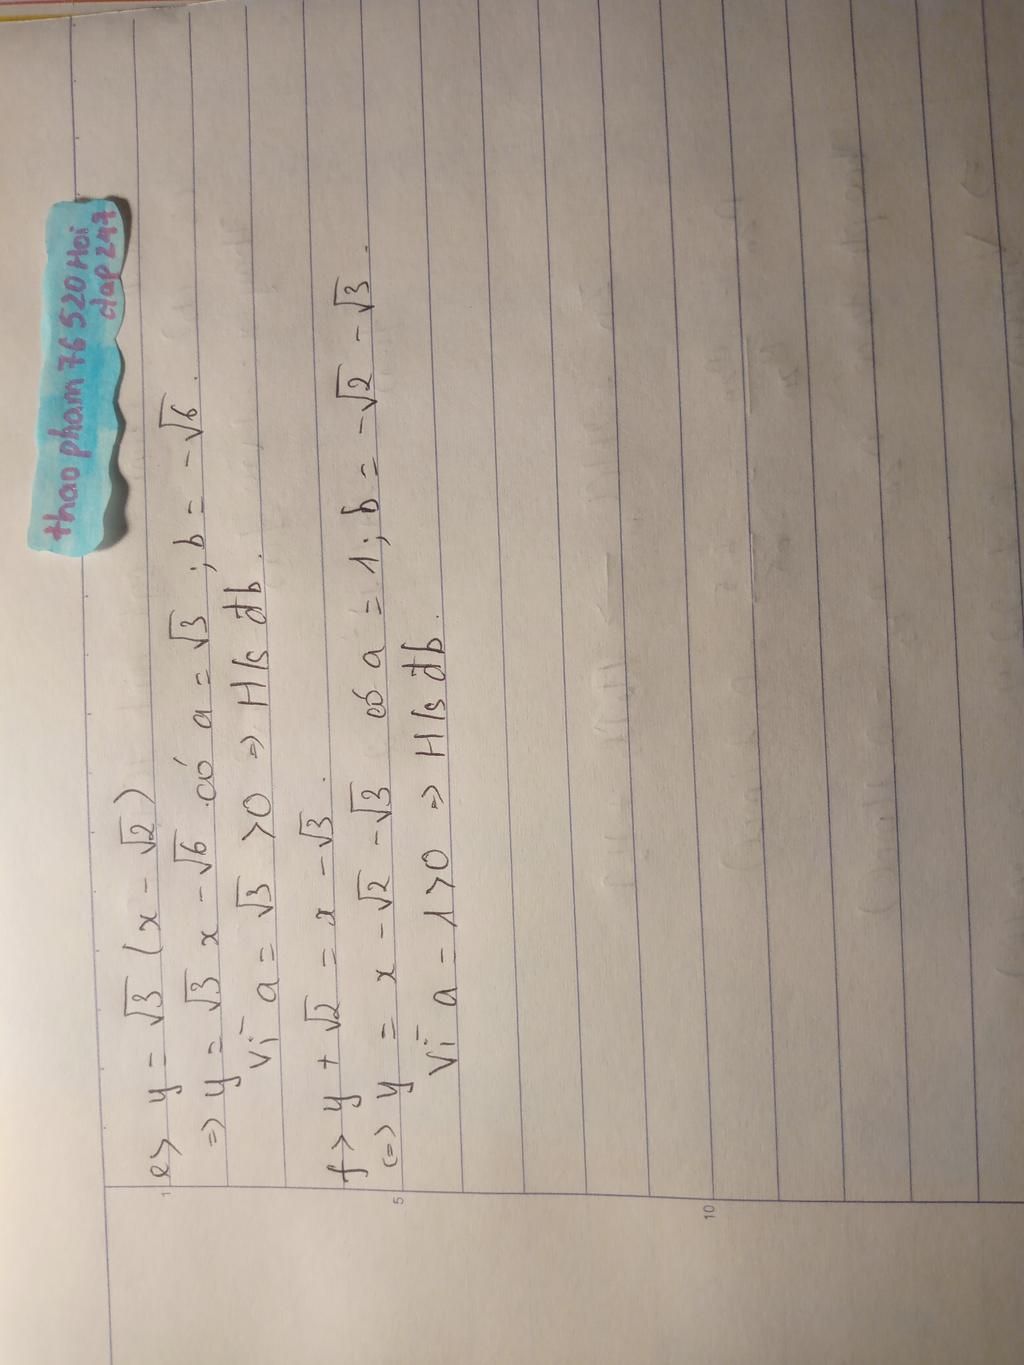 thaopham76520Hoi
dap247
e> y = √3 (x - √2)
=> y = √3 x - √6 có a = √3 ; b = -√6.
Vì a = √3 >0 => H/s đb.
f> y + √2 = x - √3.
<=> y = x - √2 - √3 có a = 1; b = -√2 - √3.
Vì a = 1 >0 => H/s đb.
1
5
10